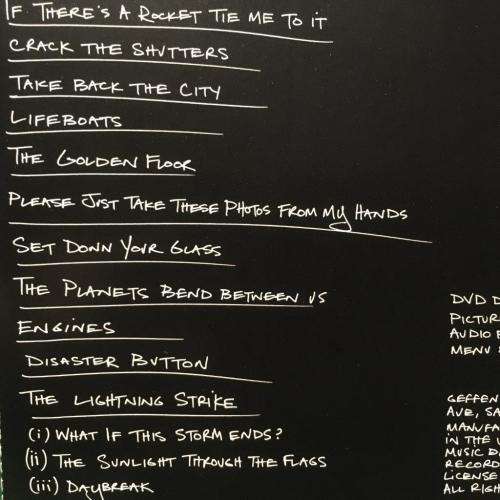 IF THERE'S A ROCKET TIE ME TO IT
CRACK THE SHUTTERS
TAKE BACK THE CITY
LIFEBOATS
THE GOLDEN FLOOR
PLEASE JUST TAKE THESE PHOTOS FROM MY HANDS
SET DOWN YOUR GLASS
THE PLANETS BEND BETWEEN US
ENGINES
DISASTER BUTTON
THE LIGHTNING STRIKE
(i) WHAT IF THIS STORM ENDS?
(ii) THE SUNLIGHT THROUGH THE FLAGS
(iii) DAYBREAK
DVD D
PICTUR
AUDIO
MENU
GEFFEN
AVE, SA
MANUFA
IN THE U
MUSIC D
RECORD
LICENSE
ALL RIGH